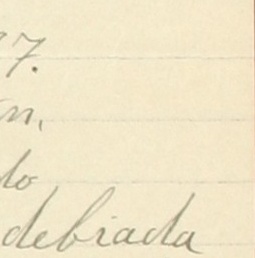 7.
n,
do
debiada